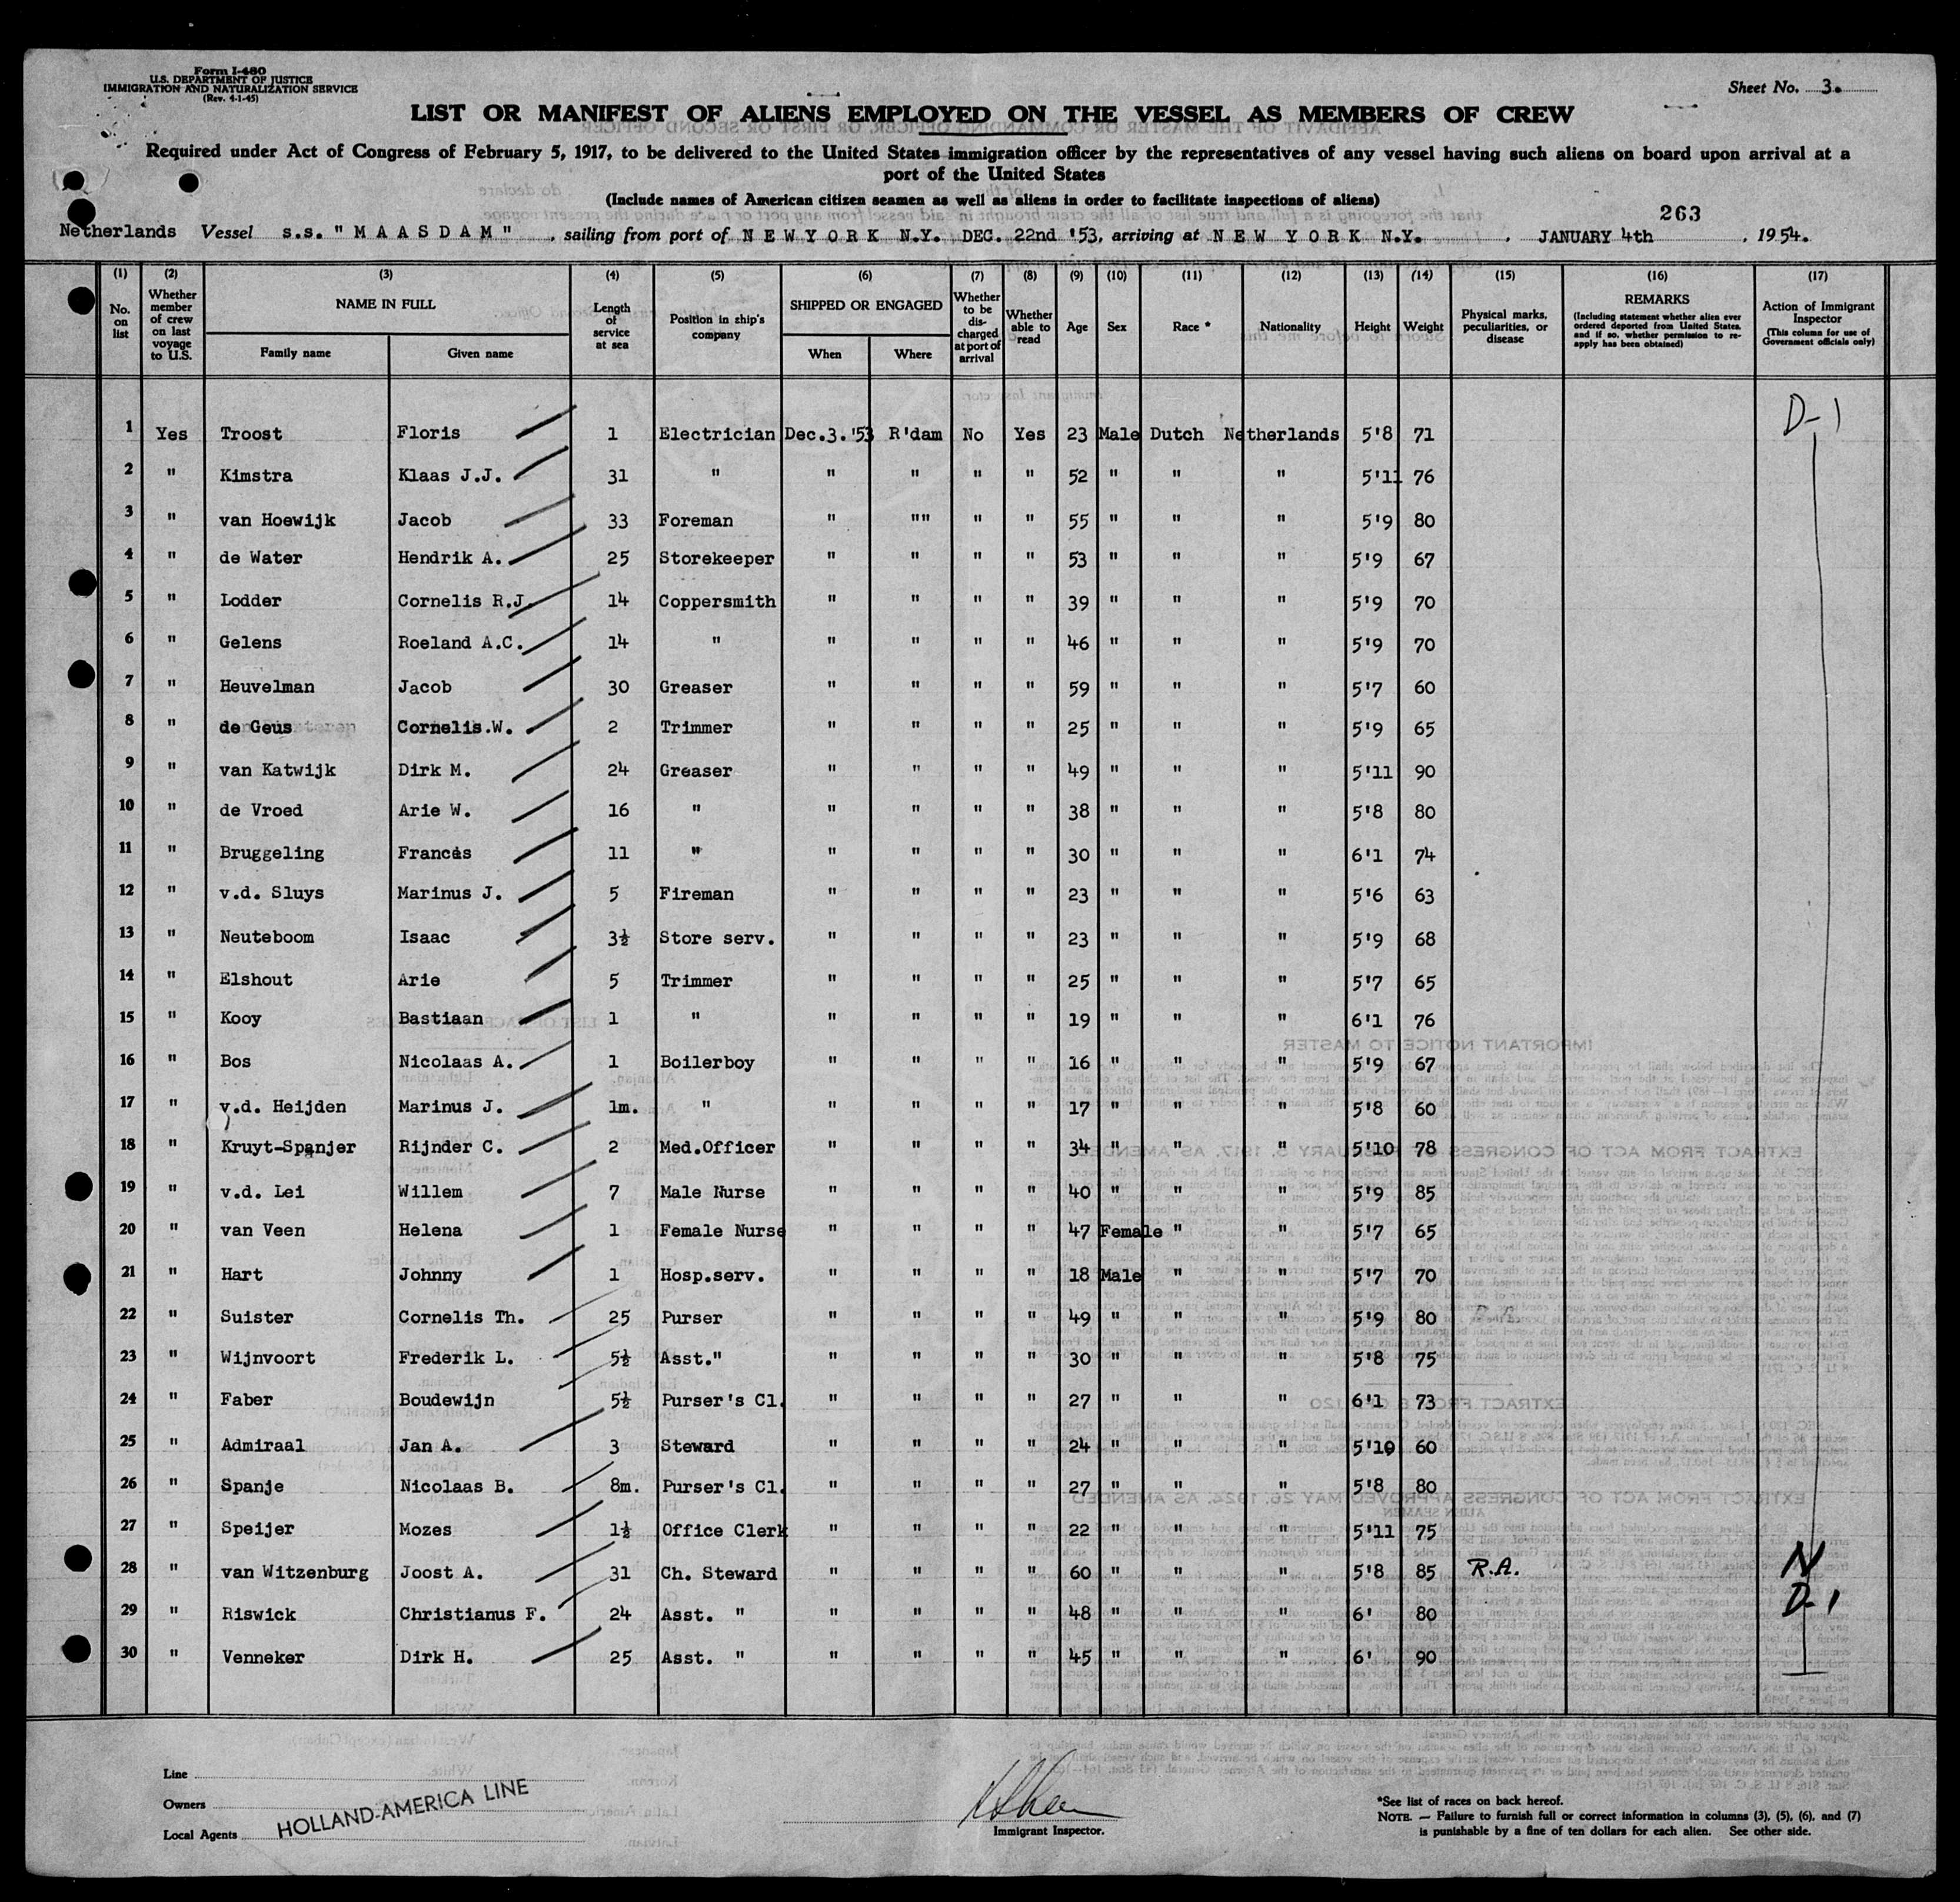 Form I-480
U.S. DEPARTMENT OF JUSTICE
IMMIGRATION AND NATURALIZATION SERVICE
(Rev. 4-1-45)
Sheet No. 3.
LIST OR MANIFEST OF ALIENS EMPLOYED ON THE VESSEL AS MEMBERS OF CREW
Required under Act of Congress of February 5, 1917, to be delivered to the United States immigration officer by the representatives of any vessel having such aliens on board upon arrival at a
port of the United States
(Include names of American citizen seamen as well as aliens in order to facilitate inspections of aliens)
263
Netherlands Vessel s.s. "MAASDAM", sailing from port of NEWYORK N.Y. DEC. 22nd '53, arriving at NEW YORK N.Y., JANUARY 4th, 1954.
(1) (2) (3) (4) (5) (6) (7) (8) (9) (10) (11) (12) (13) (14) (15) (16) (17)
No. on list
Whether member of crew on last voyage to U.S.
NAME IN FULL
Family name Given name
Length of service at sea
Position in ship's company
SHIPPED OR ENGAGED
When Where
Whether to be discharged at port of arrival
Whether able to read
Age Sex Race * Nationality Height Weight
Physical marks, peculiarities, or disease
REMARKS
(Including statement whether alien ever ordered deported from United States, and if so, whether permission to re-apply has been obtained)
Action of Immigrant Inspector
(This column for use of Government officials only)
D-1
1 Yes Troost Floris 1 Electrician Dec.3.'53 R'dam No Yes 23 Male Dutch Netherlands 5'8 71
2 " Kimstra Klaas J.J. 31 " " " " " 52 " " " 5'11 76
3 " van Hoewijk Jacob 33 Foreman " "" " " 55 " " " 5'9 80
4 " de Water Hendrik A. 25 Storekeeper " " " " 53 " " " 5'9 67
5 " Lodder Cornelis R.J. 14 Coppersmith " " " " 39 " " " 5'9 70
6 " Gelens Roeland A.C. 14 " " " " " 46 " " " 5'9 70
7 " Heuvelman Jacob 30 Greaser " " " " 59 " " " 5'7 60
8 " de Geus Cornelis.W. 2 Trimmer " " " " 25 " " " 5'9 65
9 " van Katwijk Dirk M. 24 Greaser " " " " 49 " " " 5'11 90
10 " de Vroed Arie W. 16 " " " " " 38 " " " 5'8 80
11 " Bruggeling Francis 11 " " " " " 30 " " " 6'1 74
12 " v.d. Sluys Marinus J. 5 Fireman " " " " 23 " " " 5'6 63
13 " Neuteboom Isaac 3½ Store serv. " " " " 23 " " " 5'9 68
14 " Elshout Arie 5 Trimmer " " " " 25 " " " 5'7 65
15 " Kooy Bastiaan 1 " " " " " 19 " " " 6'1 76
16 " Bos Nicolaas A. 1 Boilerboy " " " " 16 " " " 5'9 67
17 " v.d. Heijden Marinus J. 1m. " " " " " 17 " " " 5'8 60
18 " Kruyt-Spanjer Rijnder C. 2 Med.Officer " " " " 34 " " " 5'10 78
19 " v.d. Lei Willem 7 Male Nurse " " " " 40 " " " 5'9 85
20 " van Veen Helena 1 Female Nurse " " " " 47 Female " " 5'7 65
21 " Hart Johnny 1 Hosp.serv. " " " " 18 Male " " 5'7 70
22 " Suister Cornelis Th. 25 Purser " " " " 49 " " " 5'9 80
23 " Wijnvoort Frederik L. 5½ Asst." " " " " 30 " " " 5'8 75
24 " Faber Boudewijn 5½ Purser's Cl. " " " " 27 " " " 6'1 73
25 " Admiraal Jan A. 3 Steward " " " " 24 " " " 5'10 60
26 " Spanje Nicolaas B. 8m. Purser's Cl. " " " " 27 " " " 5'8 80
27 " Speijer Mozes 1½ Office Clerk " " " " 22 " " " 5'11 75
28 " van Witzenburg Joost A. 31 Ch. Steward " " " " 60 " " " 5'8 85 R.A. N
29 " Riswick Christianus F. 24 Asst. " " " " " 48 " " " 6' 80 D-1
30 " Venneker Dirk H. 25 Asst. " " " " " 45 " " " 6' 90
Line
Owners
Local Agents
HOLLAND-AMERICA LINE
Immigrant Inspector.
*See list of races on back hereof.
NOTE. — Failure to furnish full or correct information in columns (3), (5), (6), and (7)
is punishable by a fine of ten dollars for each alien. See other side.